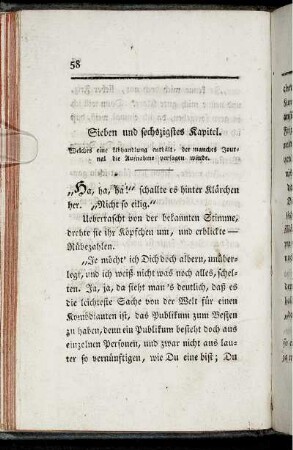 58
Sieben und sechszigstes Kapitel.
Welches eine Abhandlung enthält, der manches Jour-
nal die Aufnahme versagen würde.
„Ha, ha, ha!“ schallte es hinter Klärchen
her. „Nicht so eilig.“
Ueberrascht von der bekannten Stimme,
drehte sie ihr Köpfchen um, und erblickte —
Rübezahlen.
„Je möcht' ich Dich doch albern, unüber-
legt, und ich weiß nicht was noch alles, schel-
ten. Ja, ja, da sieht man's deutlich, daß es
die leichteste Sache von der Welt für einen
Komödianten ist, das Publikum zum Besten
zu haben, denn ein Publikum besteht doch aus
einzelnen Personen, und zwar nicht aus lau-
ter so vernünftigen, wie Du eine bist; Du